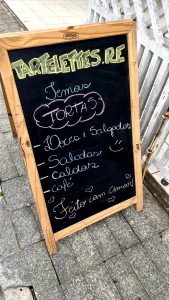 TARTELETTES.RE
Temos
TORTAS
- Doces e Salgados
- Saladas
- Caldos
- Café
Feito com amor!